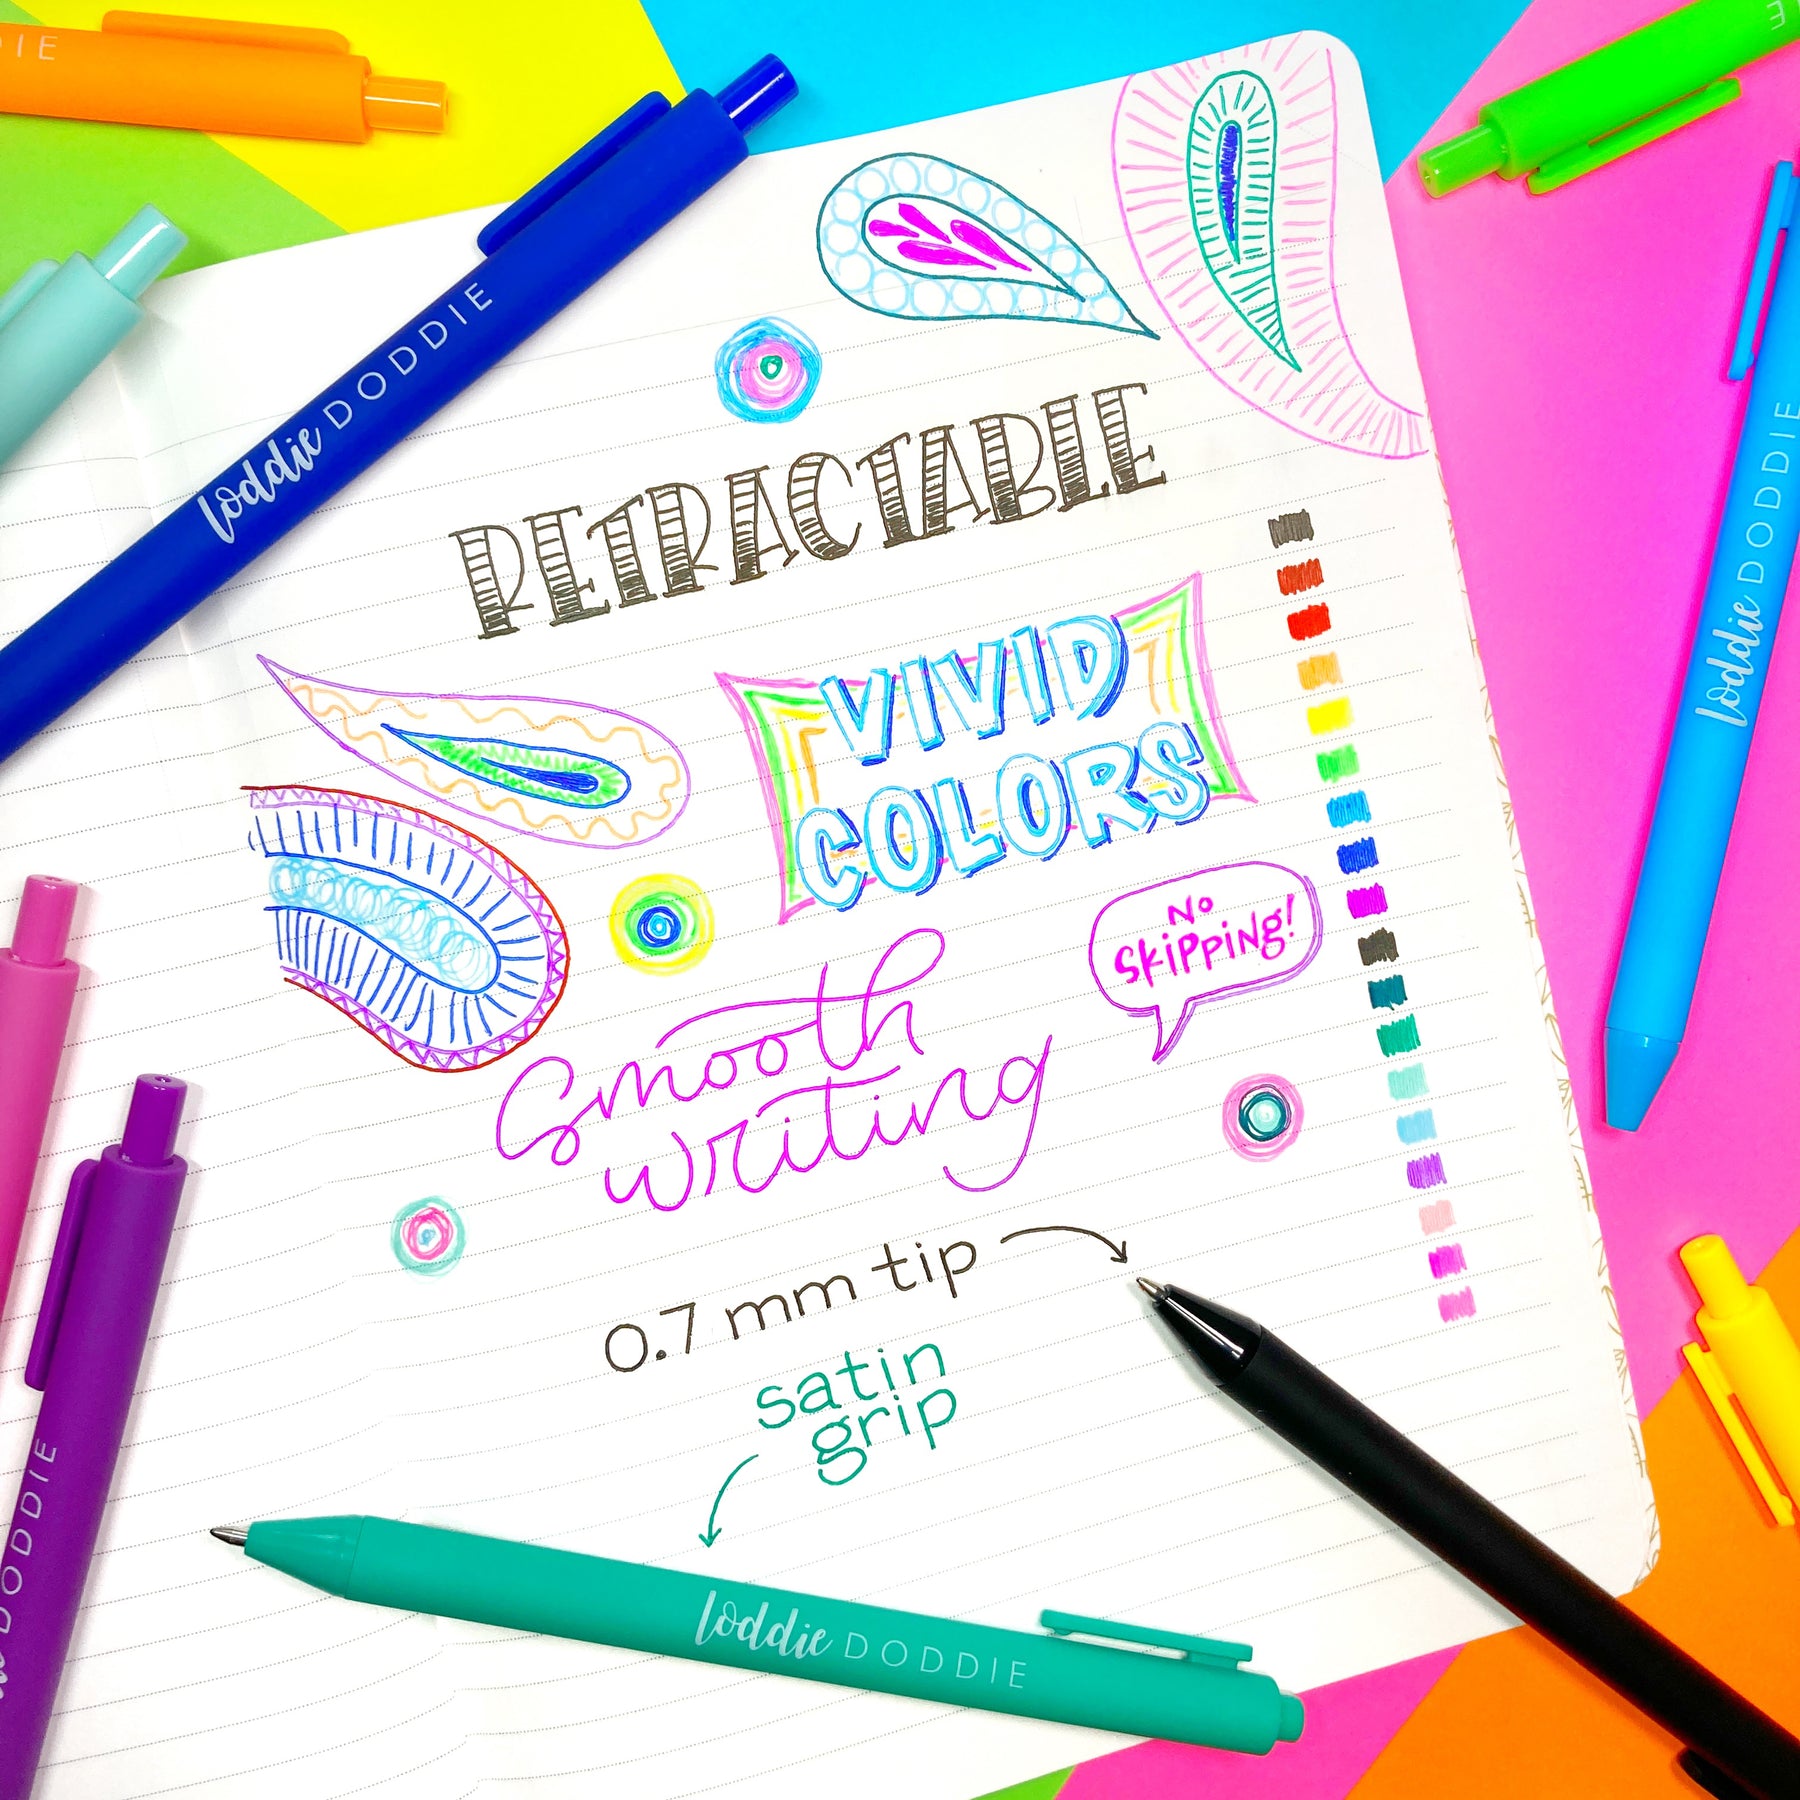 IE
E
loddie DODDIE
RETRACTABLE
loddie DODDIE
VIVID
COLORS
No
Skipping!
smooth
writing
0.7 mm tip
satin
grip
DODDIE
loddie DODDIE